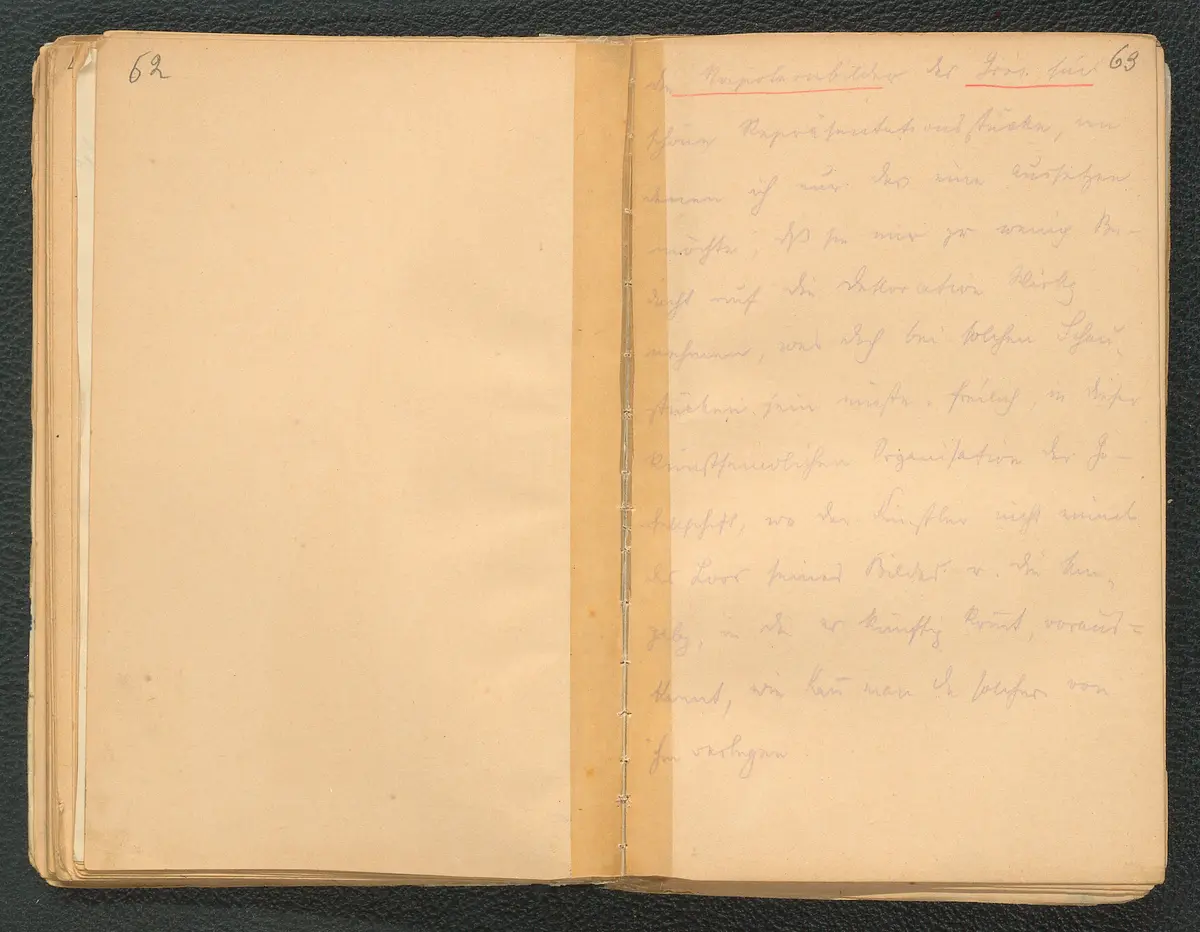 62
63
die Napoleonbilder des Gros sind
schöne Repräsentationsstücke, an
denen ich nur das eine aussetzen
möchte, daß sie mir zu wenig Be-
dacht auf die dekorative Wirkg
nehmen, was doch bei solchen Schau-
stücken sein müßte. freilich, in dieser
kunstfeindlichen Organisation der Ge-
sellschaft, wo der Künstler nicht einmal
das Loos seines Bildes u. die Um-
gebg, in die er künftig kommt, voraus-
kennt, wie kann man da solches von
ihm verlangen